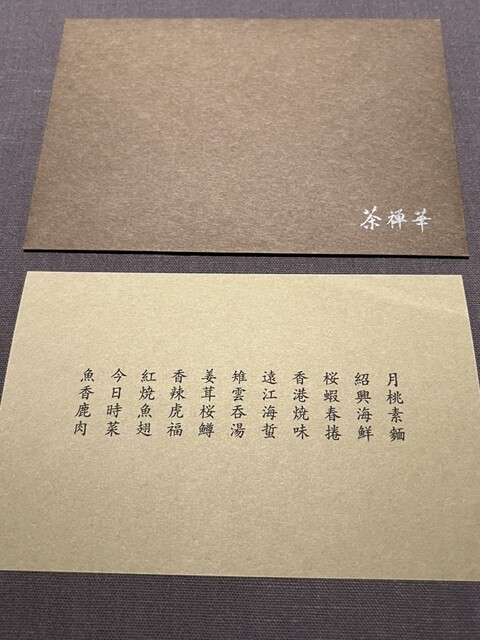 茶禅華
月桃素麺
紹興海鮮
桜蝦春捲
香港焼味
遠江海蜇
雉雲呑湯
姜茸桜鱒
香辣虎福
紅焼魚翅
今日時菜
魚香鹿肉